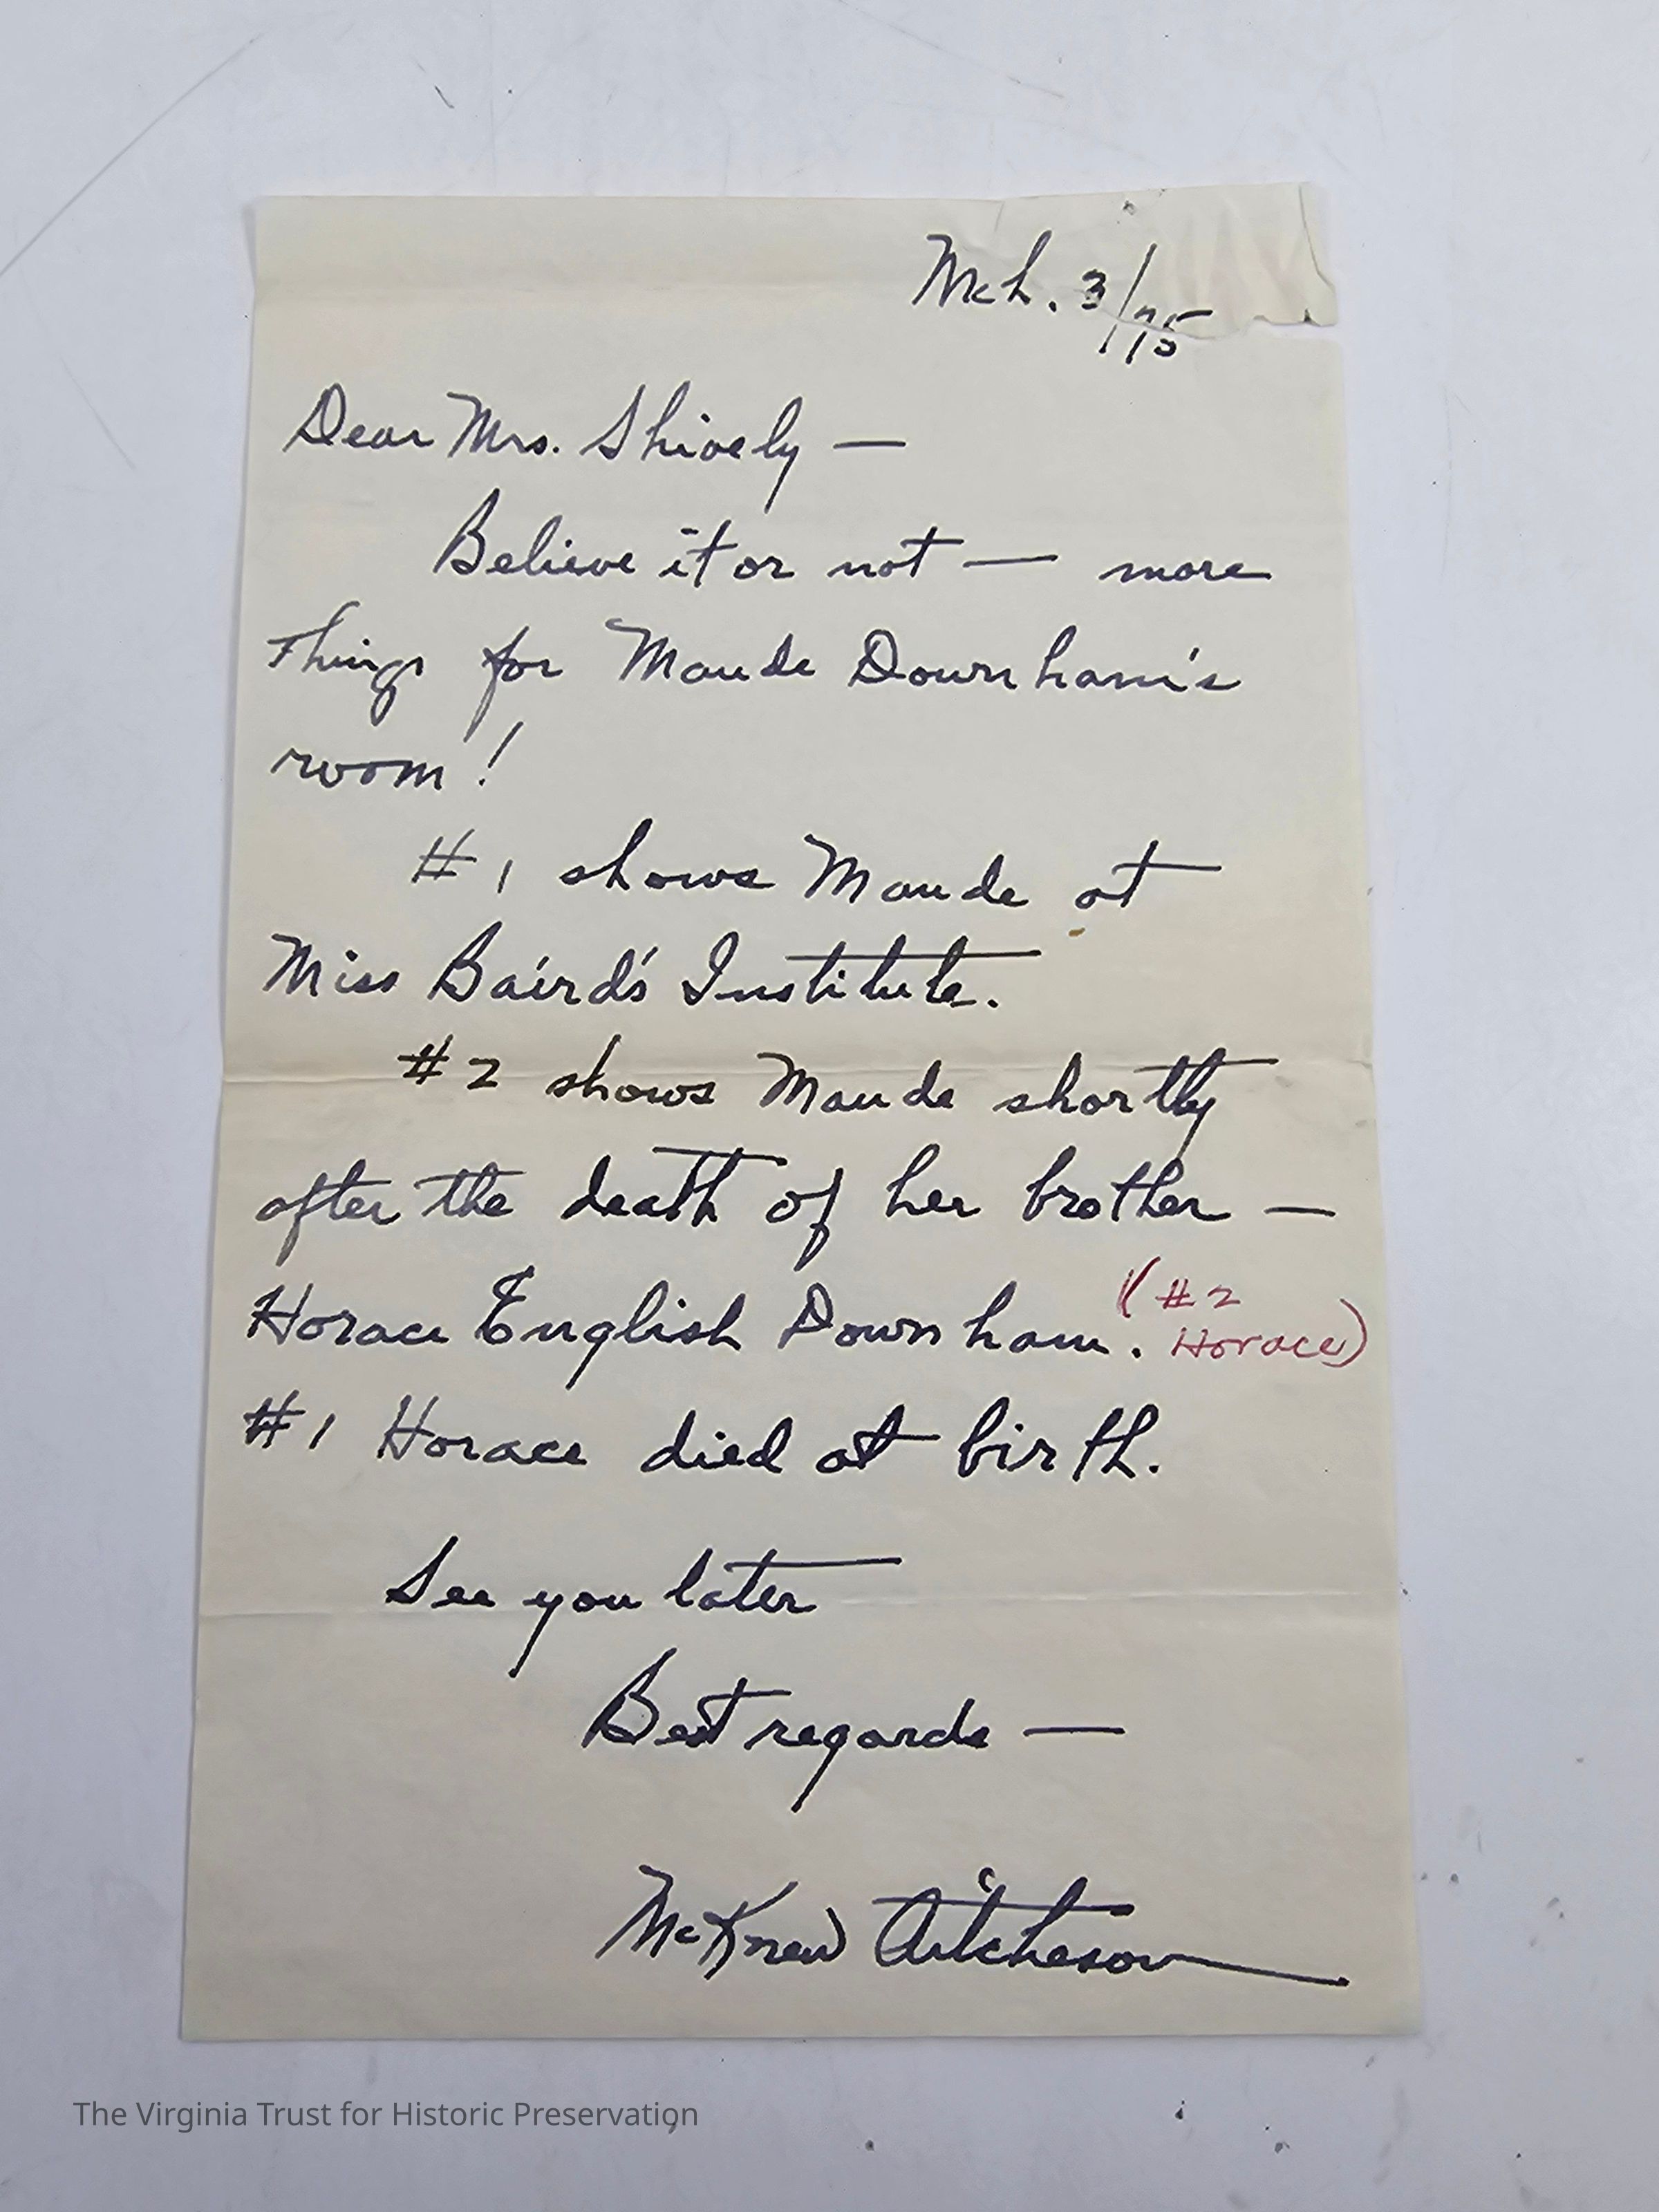 Mch. 3/75
Dear Mrs. Shively —
Believe it or not — more
things for Maude Downham's
room!
#1 shows Maude at
Miss Baird's Institute.
#2 shows Maude shortly
after the death of her brother —
Horace English Downham. (#2
Horace)
#1 Horace died at birth.
See you later
Best regards —
McKnew Aitcheson
The Virginia Trust for Historic Preservation